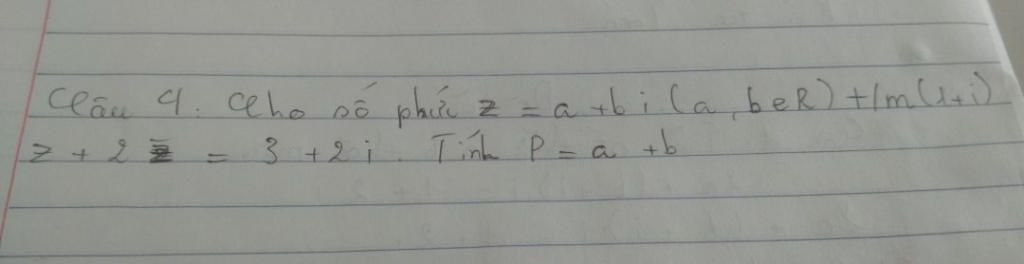 Câu 9. Cho số phức z = a + bi (a, b ∈ R) t/m (1+i)
z + 2z̄ = 3 + 2i. Tính P = a + b